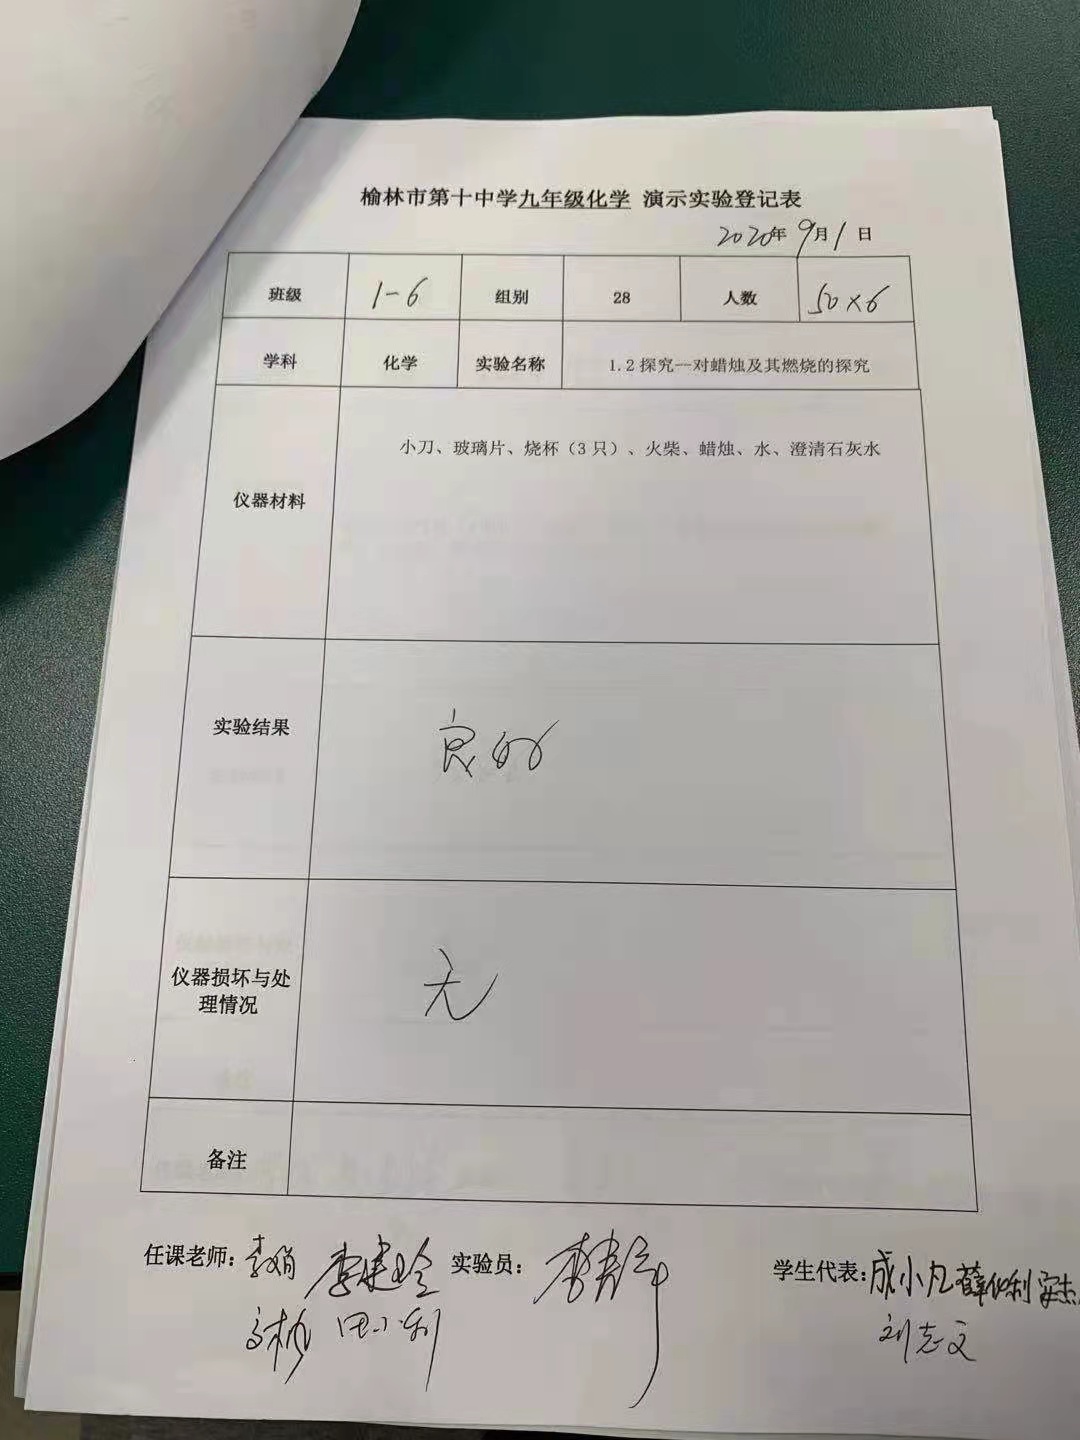 榆林市第十中学九年级化学 演示实验登记表
2020年9月1日
班级 1-6 组别 28 人数 50×6
学科 化学 实验名称 1.2探究一对蜡烛及其燃烧的探究
仪器材料 小刀、玻璃片、烧杯（3只）、火柴、蜡烛、水、澄清石灰水
实验结果 良好
仪器损坏与处
理情况 无
备注
任课老师：李娟 李建玲 实验员： 学生代表：成小凡
田小利 刘志文